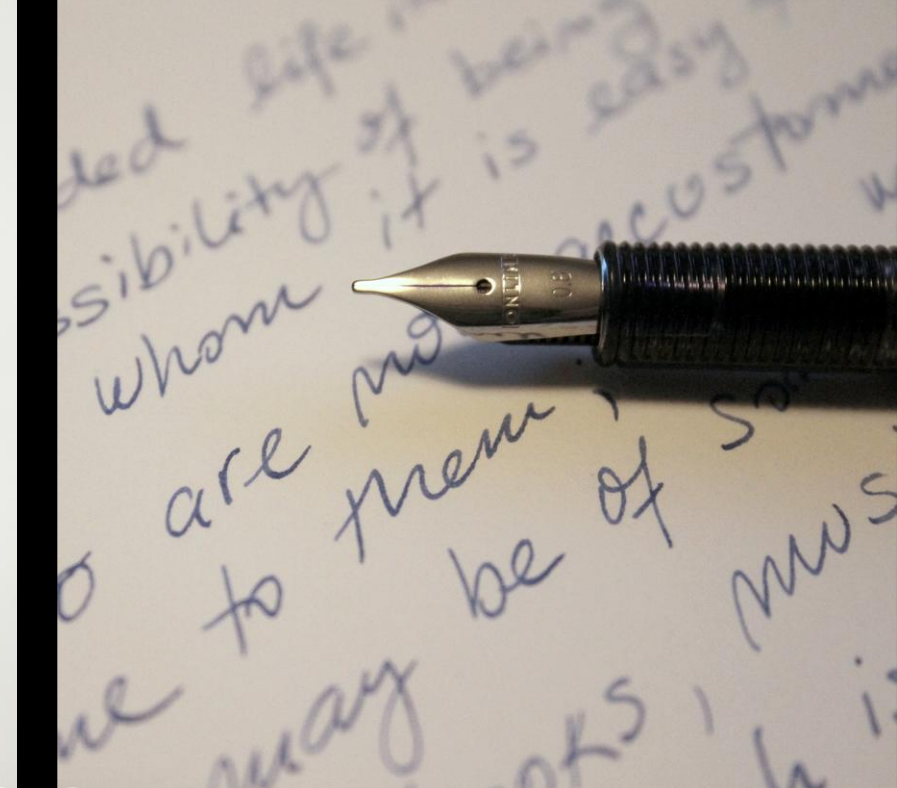 ded life
ssibility of being
whom it is easy
o are no accustome
ne to them,
may be of so
ooks, mus
h is
0.8